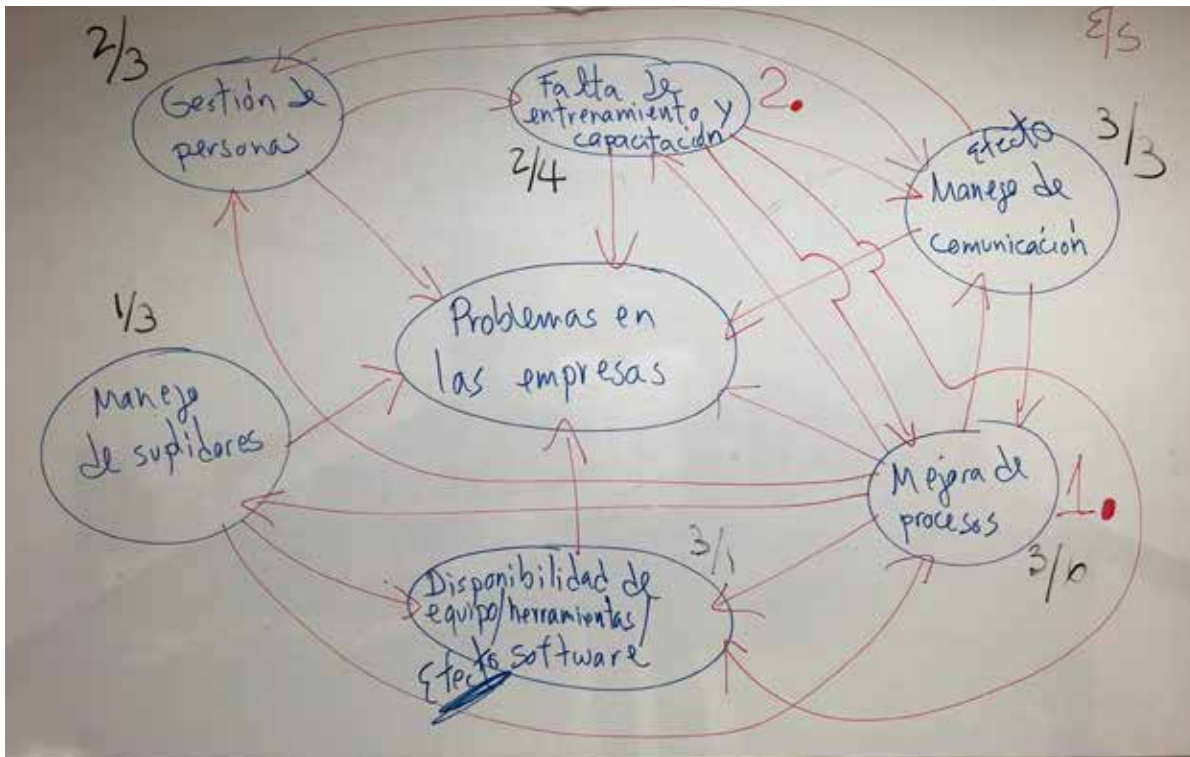 2/3
E/S
Gestión de
personas
Falta de
entrenamiento y
capacitación
2.
2/4
efecto
Manejo de
comunicación
3/3
1/3
Problemas en
las empresas
Manejo
de suplidores
Mejora de
procesos
1.
3/6
3/1
Disponibilidad de
equipo/herramientas/
software
Efecto